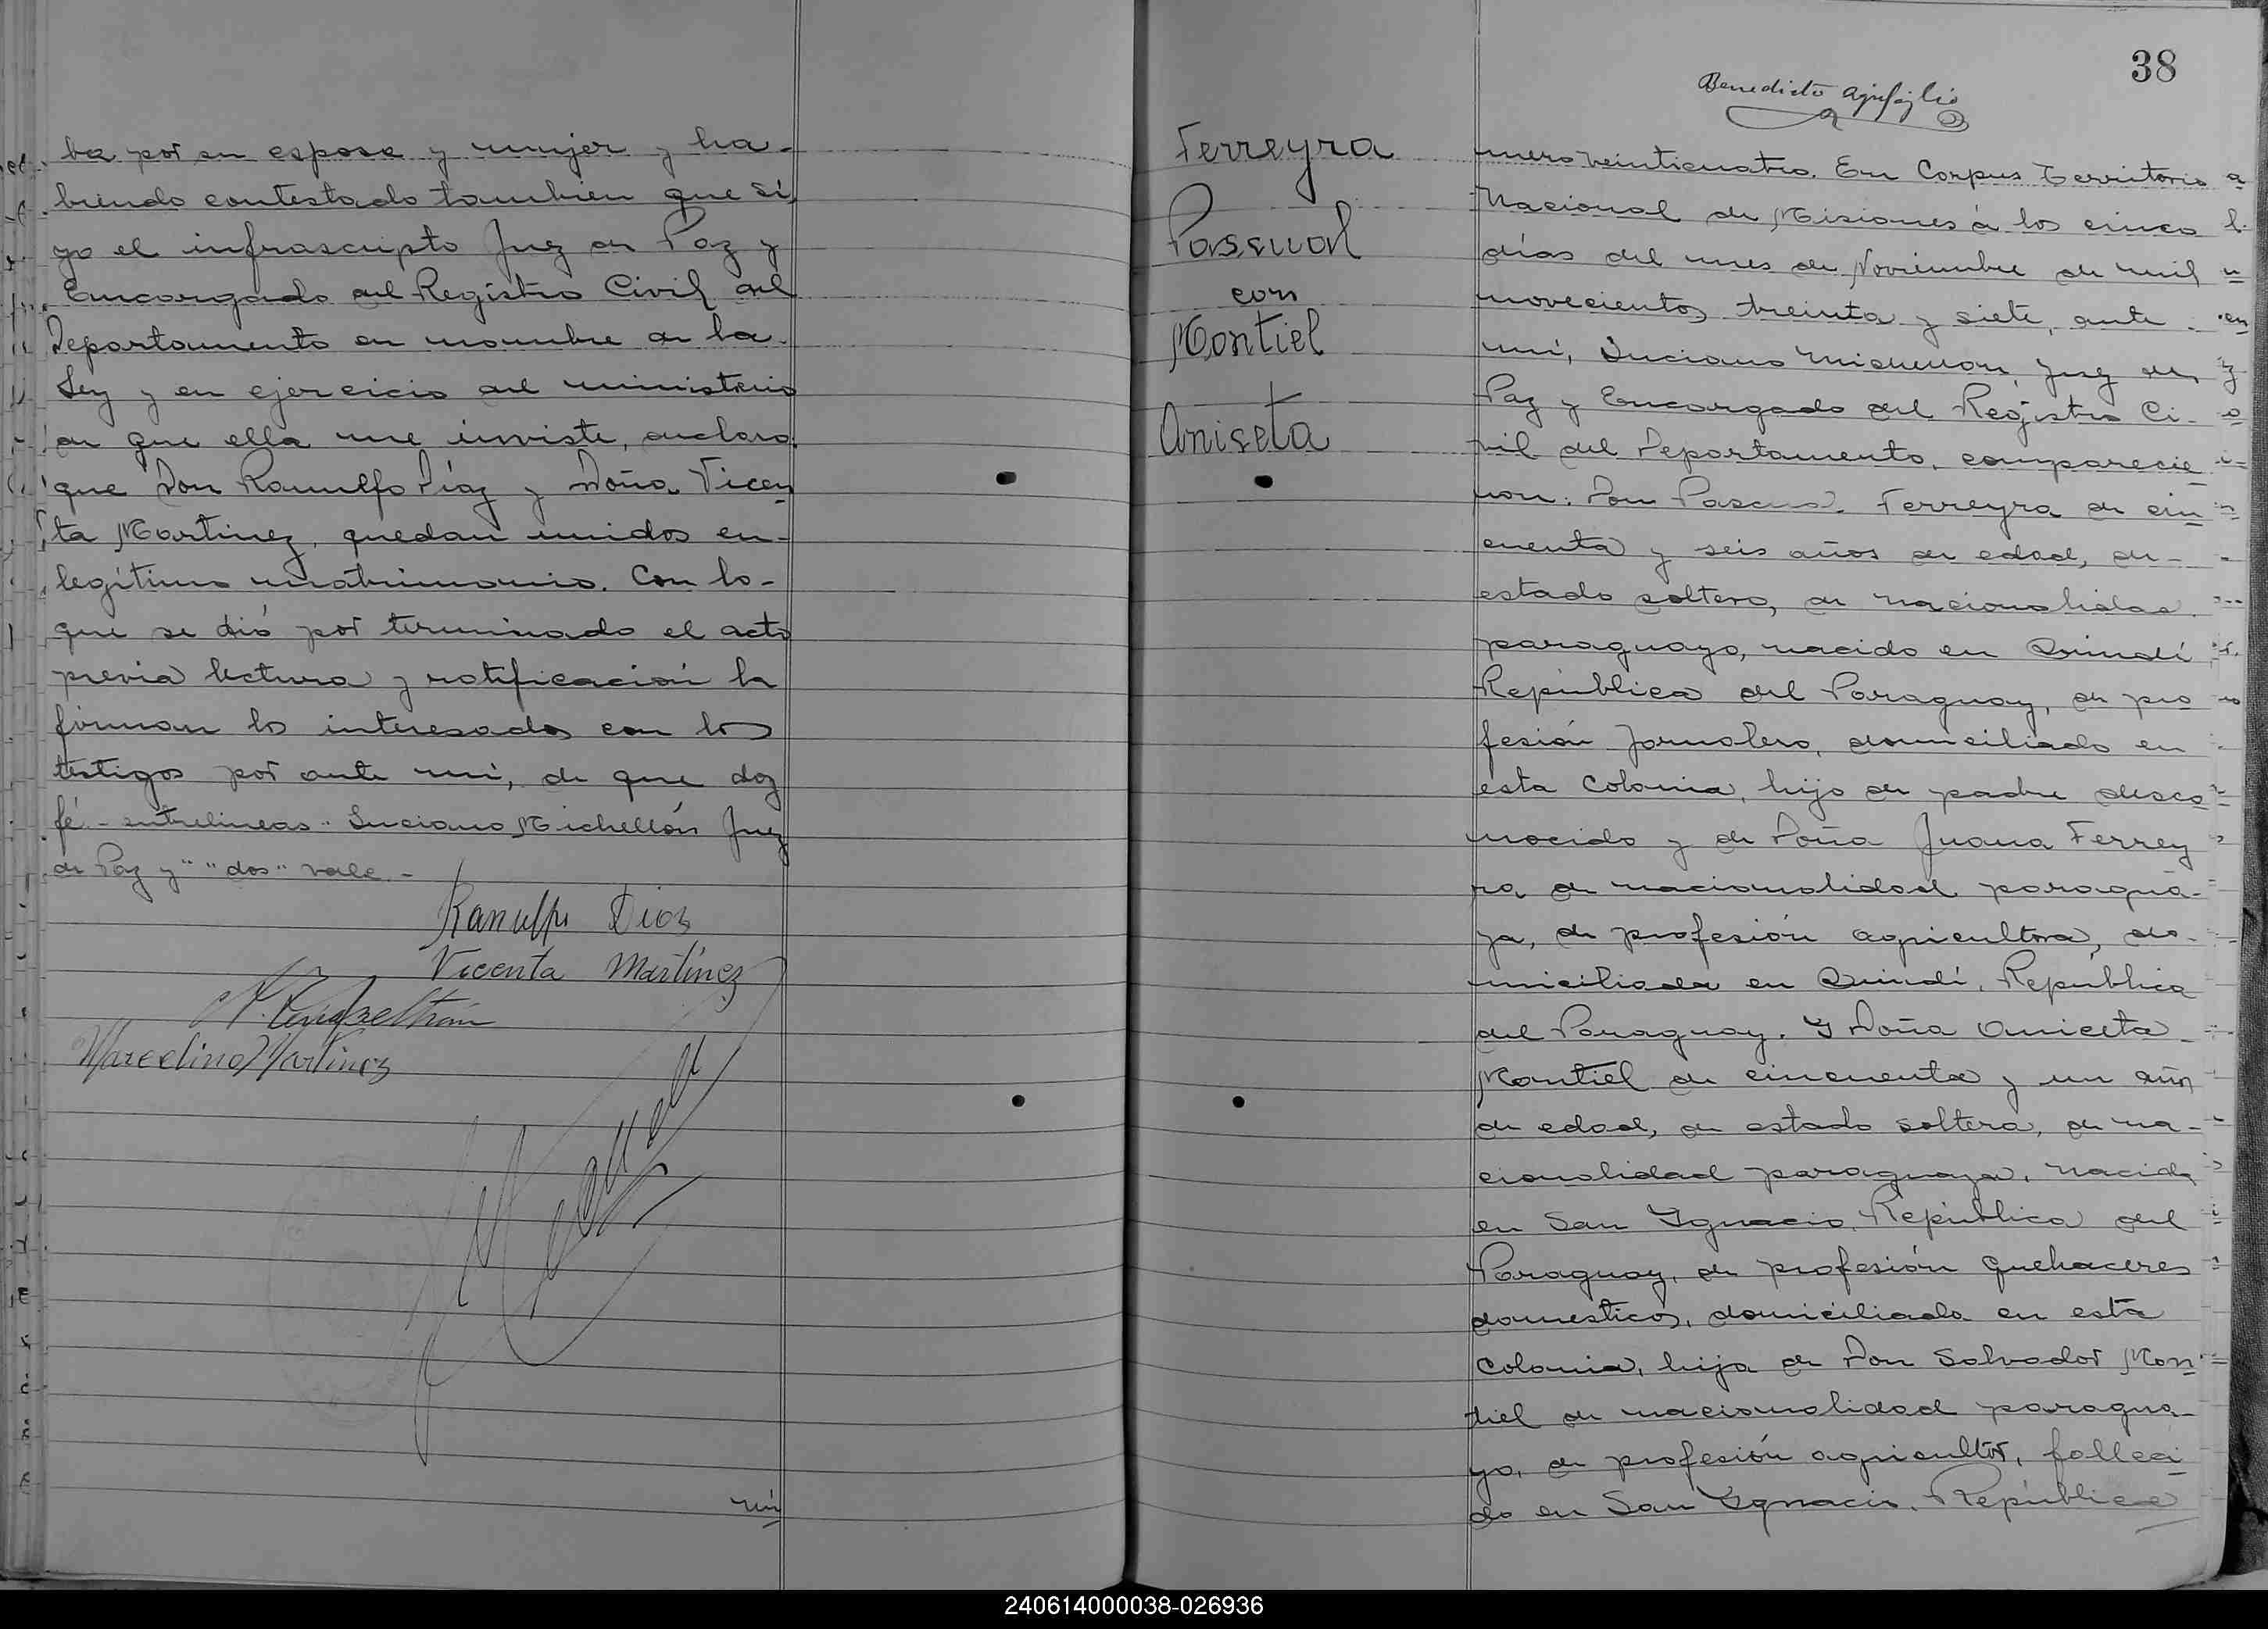 ba por su esposa y mujer y ha-
biendo contestado tambien que sí,
yo el infrascripto Juez de Paz y
Encargado del Registro Civil del
Departamento en nombre de la
Ley y en ejercicio del ministerio
de que ella me inviste, declaro
que Don Ranulfo Díaz y Doña Vicen
ta Martinez, quedan unidos en-
legítimo matrimonio. Con lo-
que se dió por terminado el acto
previa lectura y ratificación la
firman los interesados con los
testigos por ante mi, de que doy
fé - entrelineas - " Luciano Michellón Juez
de Paz y " " dos " vale -
Ranulfo Dios
Vicenta Martínez
Marcelino Martinez
nú
38
Benedicto
Ferreyra
Pascual
con
Montiel
Aniseta
mero veinticuatro. En Corpus Territorio
Nacional de Misiones á los cinco
días del mes de Noviembre de mil
novecientos treinta y siete, ante
mi, Luciano Michellon, Juez de
Paz y Encargado del Registro Ci-
vil del Departamento, comparecie
ron: Don Pascual Ferreyra de cin
cuenta y seis años de edad, de-
estado soltero, de nacionalidad
paraguayo, nacido en Quindí
República del Paraguay, de pro
fesión jornalero, domiciliado en
esta Colonia, hijo de padre desco
nocido y de Doña Juana Ferrey
ra de nacionalidad paragua-
ya, de profesión agricultora, do-
miciliada en Quindí, República
del Paraguay. Y Doña Aniceta
Montiel de cincuenta y un años
de edad, de estado soltera, de na-
cionalidad paraguaya, nacida
en San Ygnacio, República del
Paraguay, de profesión quehaceres
domesticos, domiciliada en esta
Colonia, hija de Don Salvador Mon
tiel de nacionalidad paragua-
yo, de profesión agricultor, falleci
do en San Ygnacio, República
240614000038-026936